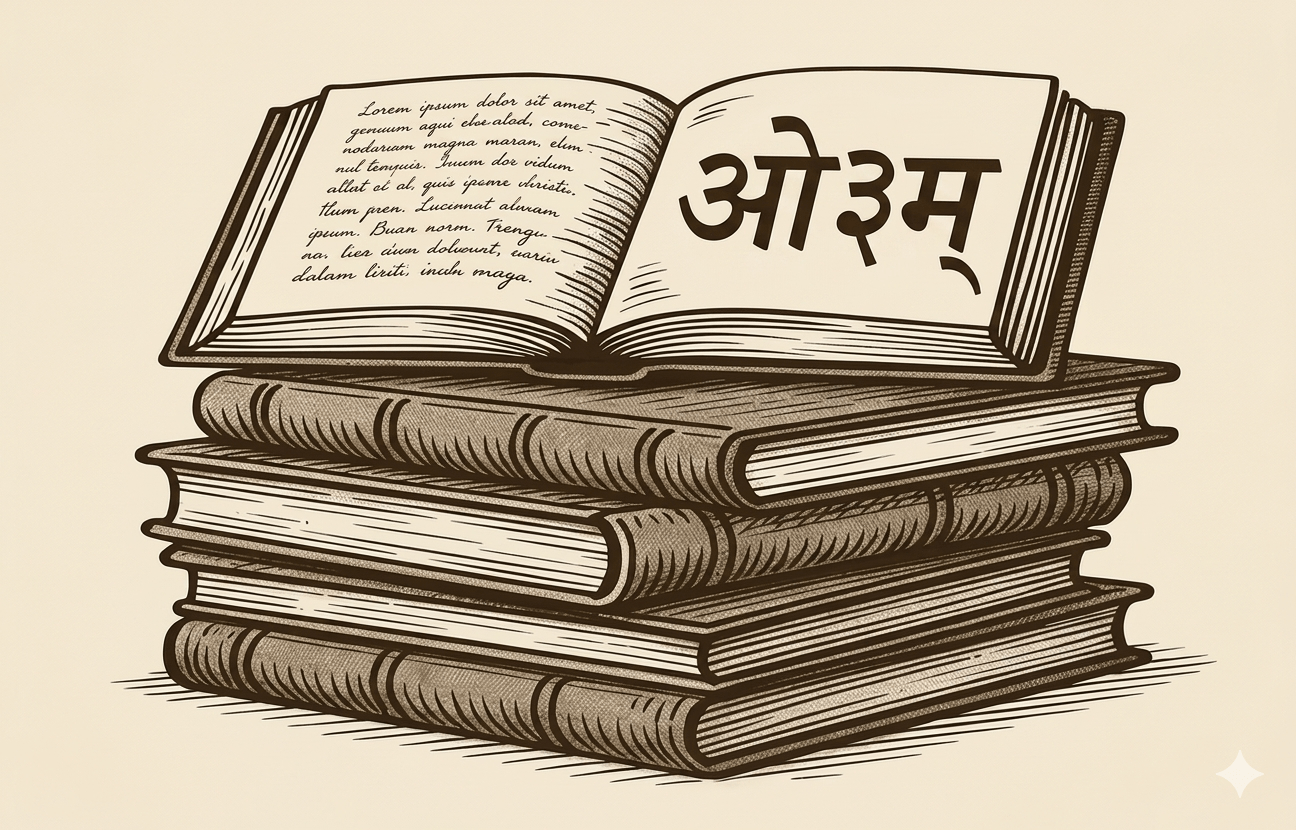 Lorem ipsum dolor sit amet,
genuum aqui elose alad, come-
nodarium magna maran, elum-
nul temquis. Ihuum dor vidum
allat et al, quis ipsome
Ilum pren. Lucennat aluram
ipsum. Buan norm. Trengu.
na. lies cium doluount,
dalam liriti, maga.
ओ३म्